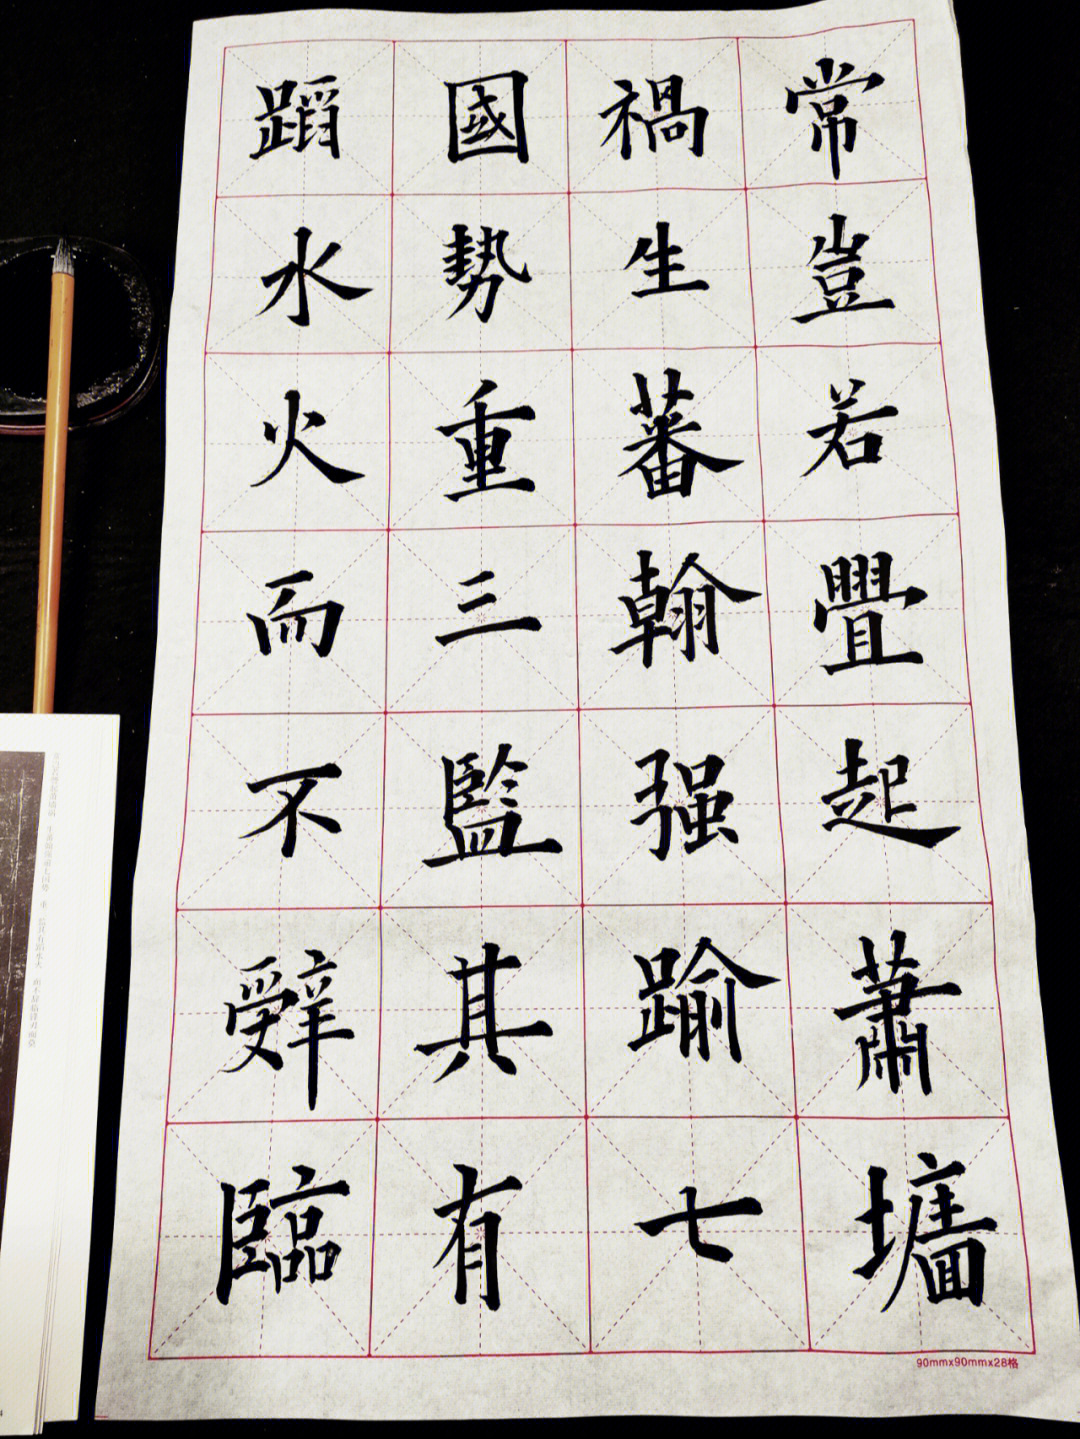 常豈若舋起蕭墻
禍生蕃翰强踰七
國勢重三監其有
蹈水火而不辤臨
90mmx90mmx28格